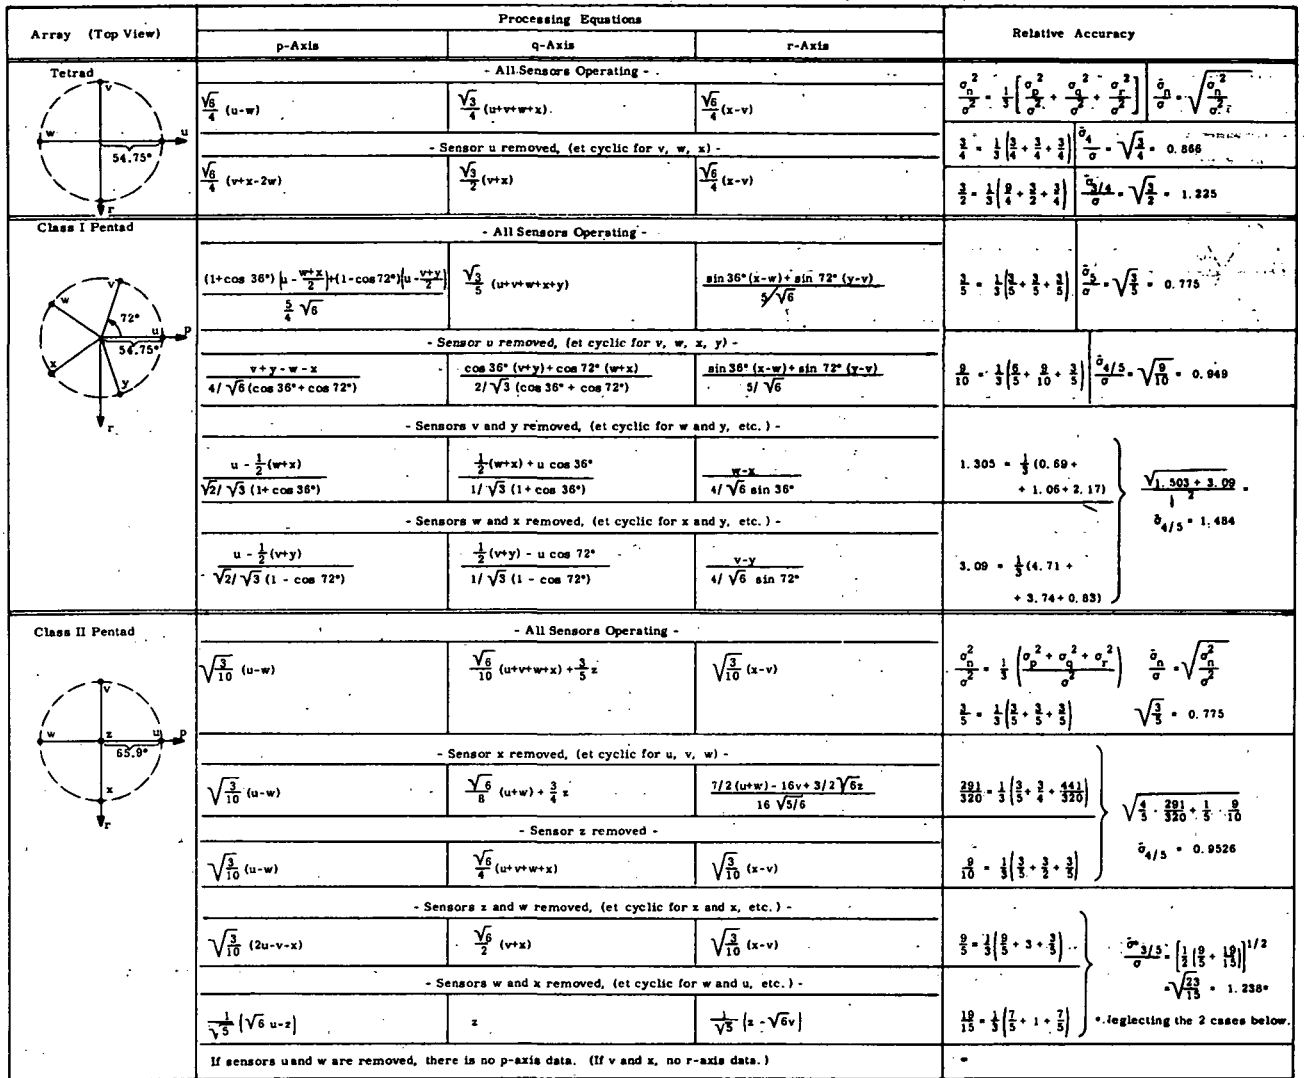 Array (Top View)
Processing Equations
Relative Accuracy
p-Axis q-Axis r-Axis
Tetrad
v
w
u
54.75°
r
- All Sensors Operating -
√6/4 (u-w)
√3/4 (u+v+w+x)
√6/4 (x-v)
- Sensor u removed, (et cyclic for v, w, x) -
√6/4 (v+x-2w)
√3/2 (v+x)
√6/4 (x-v)
σ̄n²/σ² = 1/3 [σp²/σ² + σq²/σ² + σr²/σ²] σ̄n/σ = √(σ̄n²/σ²)
3/4 = 1/3 (3/4 + 3/4 + 3/4) σ̄4/σ = √(3/4) = 0.866
3/2 = 1/3 (9/4 + 3/2 + 3/4) σ̄3/4/σ = √(3/2) = 1.225
Class I Pentad
v
w
72°
u
p
54.75°
x
y
r
- All Sensors Operating -
(1+cos 36°) (u - (w+x)/2) + (1-cos72°) (u - (v+y)/2)
5/4 √6
√3/5 (u+v+w+x+y)
sin 36° (x-w) + sin 72° (y-v)
5/√6
3/5 = 1/3 (3/5 + 3/5 + 3/5) σ̄5/σ = √(3/5) = 0.775
- Sensor u removed, (et cyclic for v, w, x, y) -
v + y - w - x
4/√6 (cos 36° + cos 72°)
cos 36° (v+y) + cos 72° (w+x)
2/√3 (cos 36° + cos 72°)
sin 36° (x-w) + sin 72° (y-v)
5/√6
9/10 = 1/3 (6/5 + 9/10 + 3/5) σ̄4/5/σ = √(9/10) = 0.949
- Sensors v and y removed, (et cyclic for w and y, etc.) -
u - 1/2 (w+x)
√2/√3 (1+ cos 36°)
1/2 (w+x) + u cos 36°
1/√3 (1+ cos 36°)
w-x
4/√6 sin 36°
1.305 = 1/3 (0.69 +
+ 1.06 + 2.17)
√(1.503 + 3.09)
2
σ̄4/5 = 1.484
- Sensors w and x removed, (et cyclic for x and y, etc.) -
u - 1/2 (v+y)
√2/√3 (1 - cos 72°)
1/2 (v+y) - u cos 72°
1/√3 (1 - cos 72°)
v-y
4/√6 sin 72°
3.09 = 1/3 (4.71 +
+ 3.74 + 0.83)
Class II Pentad
v
w
z
u
p
65.9°
x
r
- All Sensors Operating -
√(3/10) (u-w)
√6/10 (u+v+w+x) + 3/5 z
√(3/10) (x-v)
σn²/σ² = 1/3 ((σp² + σq² + σr²)/σ²) σ̄n/σ = √(σn²/σ²)
3/5 = 1/3 (3/5 + 3/5 + 3/5) √(3/5) = 0.775
- Sensor x removed, (et cyclic for u, v, w) -
√(3/10) (u-w)
√6/8 (u+w) + 3/4 z
7/2 (u+w) - 16v + 3/2 √6z
16 √5/6
291/320 = 1/3 (3/5 + 3/4 + 441/320)
√(4/5 · 291/320 + 1/5 · 9/10)
σ̄4/5 = 0.9526
- Sensor z removed -
√(3/10) (u-w)
√6/4 (u+v+w+x)
√(3/10) (x-v)
9/10 = 1/3 (3/5 + 3/2 + 3/5)
- Sensors z and w removed, (et cyclic for z and x, etc.) -
√(3/10) (2u-v-x)
√6/2 (v+x)
√(3/10) (x-v)
9/5 = 1/3 (9/5 + 3 + 3/5)
σ̄*3/5/σ = [1/2 (9/5 + 19/15)]1/2
= √(23/15) = 1.238*
- Sensors w and x removed, (et cyclic for w and u, etc.) -
1/√5 (√6 u-z)
z
1/√5 (z - √6v)
19/15 = 1/3 (7/5 + 1 + 7/5)
*.leglecting the 2 cases below.
If sensors u and w are removed, there is no p-axis data. (If v and x, no r-axis data.)